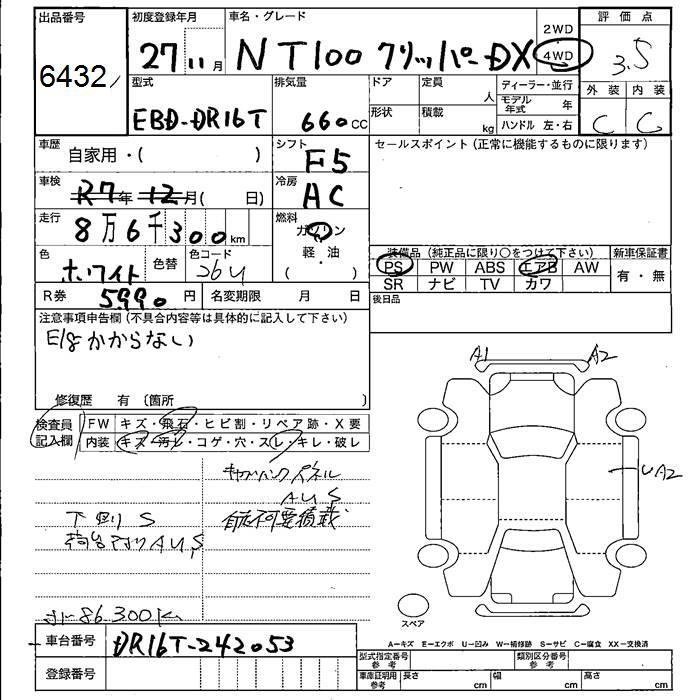 出品番号
6432
初度登録年月
27 11 月
車名・グレード
NT100 クリッパー DX
2WD
4WD
評価点
3.5
外装 内装
C C
型式
EBD-DR16T
排気量
660 CC
ドア
形状
定員
人
積載
kg
ディーラー・並行
モデル年式 年
ハンドル 左・右
車歴
自家用・( )
シフト
F5
セールスポイント (正常に機能するものに限ります)
車検
R7年 12月( 日)
冷房
AC
走行
8万6千300km
燃料
ガソリン
軽・油
( )
色
ホワイト
色替
色コード
26U
装備品 (純正品に限り〇をつけて下さい)
PS PW ABS エアB AW
SR ナビ TV カワ
新車保証書
有・無
R券 5990 円
名変期限 月 日
後日品
注意事項申告欄 (不具合内容等は具体的に記入して下さい)
E/gかからない
修復歴 有 〔箇所 〕
検査員記入欄
FW キズ・飛石・ヒビ割・リペア跡・X要
内装 キズ・汚レ・コゲ・穴・スレ・キレ・破レ
AUS
自走不可要積載
下廻りS
荷台アオリAUS
86,300km
車台番号 DR16T-242053
登録番号
A1
A2
UA2
スペア
A-キズ E-エクボ U-凹み W-補修跡 S-サビ C-腐食 XX-交換済
型式指定番号 参考
類別区分番号 参考
車庫証明用 参考
長さ cm
幅 cm
高さ cm